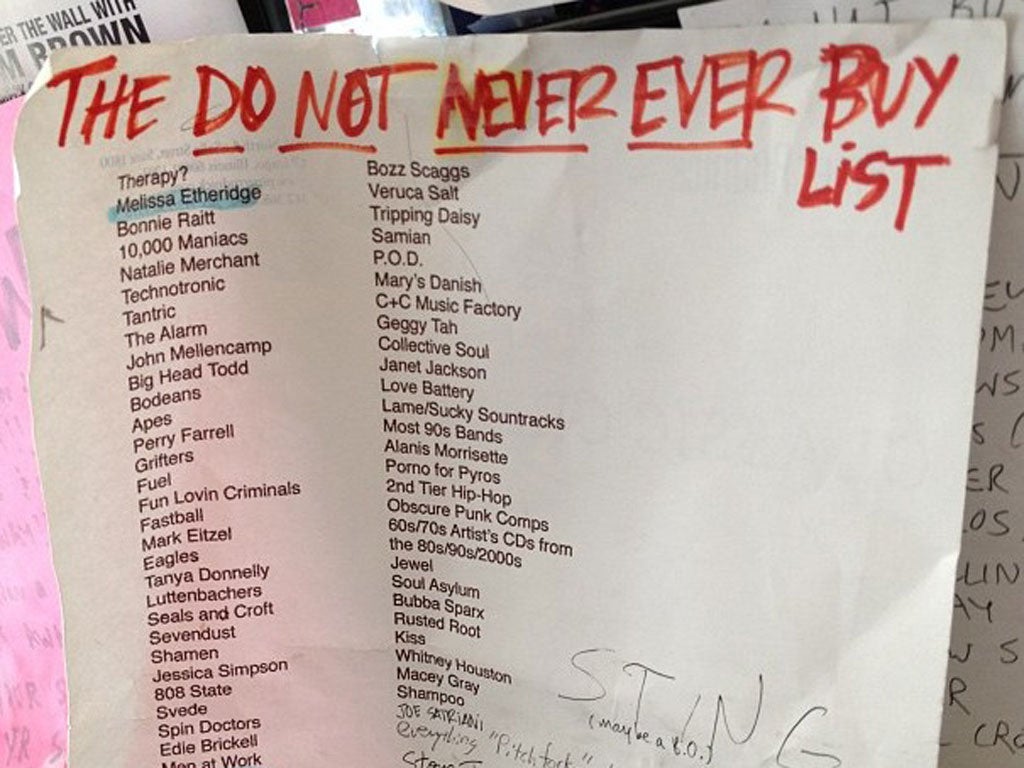 ER THE WALL WITH
M BROWN
THE DO NOT NEVER EVER BUY
LIST
Therapy?
Melissa Etheridge
Bonnie Raitt
10,000 Maniacs
Natalie Merchant
Technotronic
Tantric
The Alarm
John Mellencamp
Big Head Todd
Bodeans
Apes
Perry Farrell
Grifters
Fuel
Fun Lovin Criminals
Fastball
Mark Eitzel
Eagles
Tanya Donnelly
Luttenbachers
Seals and Croft
Sevendust
Shamen
Jessica Simpson
808 State
Svede
Spin Doctors
Edie Brickell
Men at Work
Bozz Scaggs
Veruca Salt
Tripping Daisy
Samian
P.O.D.
Mary's Danish
C+C Music Factory
Geggy Tah
Collective Soul
Janet Jackson
Love Battery
Lame/Sucky Sountracks
Most 90s Bands
Alanis Morrisette
Porno for Pyros
2nd Tier Hip-Hop
Obscure Punk Comps
60s/70s Artist's CDs from
the 80s/90s/2000s
Jewel
Soul Asylum
Bubba Sparx
Rusted Root
Kiss
Whitney Houston
Macey Gray
Shampoo
JOE SATRIANI
everything "Pitchfork"
STING
(maybe a B.O.)